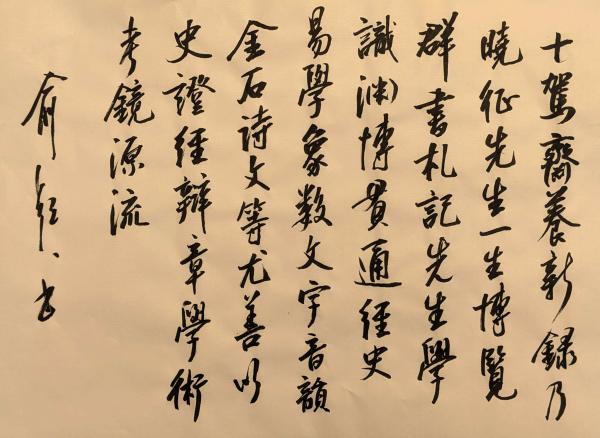 十駕齋養新錄乃
曉征先生一生博覽
群書札記先生學
識渊博貫通經史
易學象数文字音韻
金石詩文等尤善以
史證經辯章學術
考鏡源流
俞書